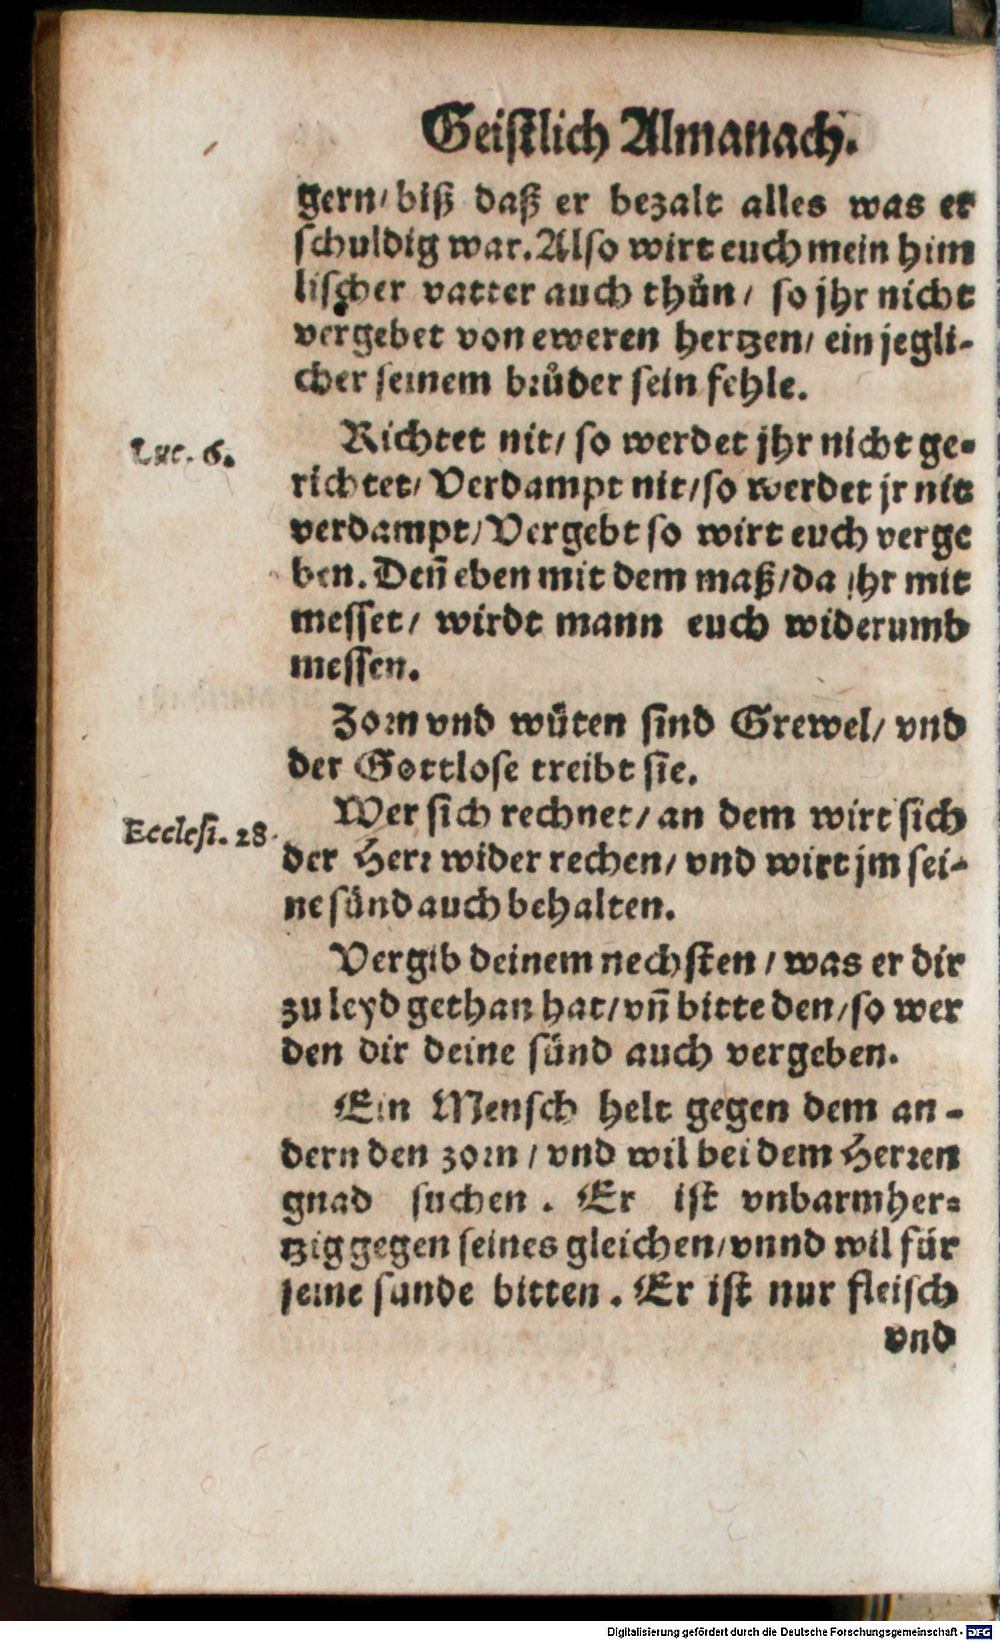 Geistlich Almanach.
gern/ biß daß er bezalt alles was er
schuldig war. Also wirt euch mein him
lischer vatter auch thůn/ so jhr nicht
vergebet von eweren hertzen/ ein jegli-
cher seinem brůder sein fehle.
Luc. 6.
Richtet nit/ so werdet jhr nicht ge-
richtet/ Verdampt nit/ so werdet jr nit
verdampt/ Vergebt so wirt euch verge
ben. Deñ eben mit dem maß/ da jhr mit
messet/ wirdt mann euch widerumb
messen.
Zorn vnd wüten sind Grewel/ vnd
der Gottlose treibt sie.
Ecclesi. 28.
Wer sich rechnet/ an dem wirt sich
der Herr wider rechen/ vnd wirt jm sei-
ne sünd auch behalten.
Vergib deinem nechsten/ was er dir
zu leyd gethan hat/ vñ bitte den/ so wer
den dir deine sünd auch vergeben.
Ein Mensch helt gegen dem an-
dern den zorn/ vnd wil bei dem Herren
gnad suchen. Er ist vnbarmher-
tzig gegen seines gleichen/ vnnd wil für
seine sunde bitten. Er ist nur fleisch
vnd
Digitalisierung gefördert durch die Deutsche Forschungsgemeinschaft - DFG